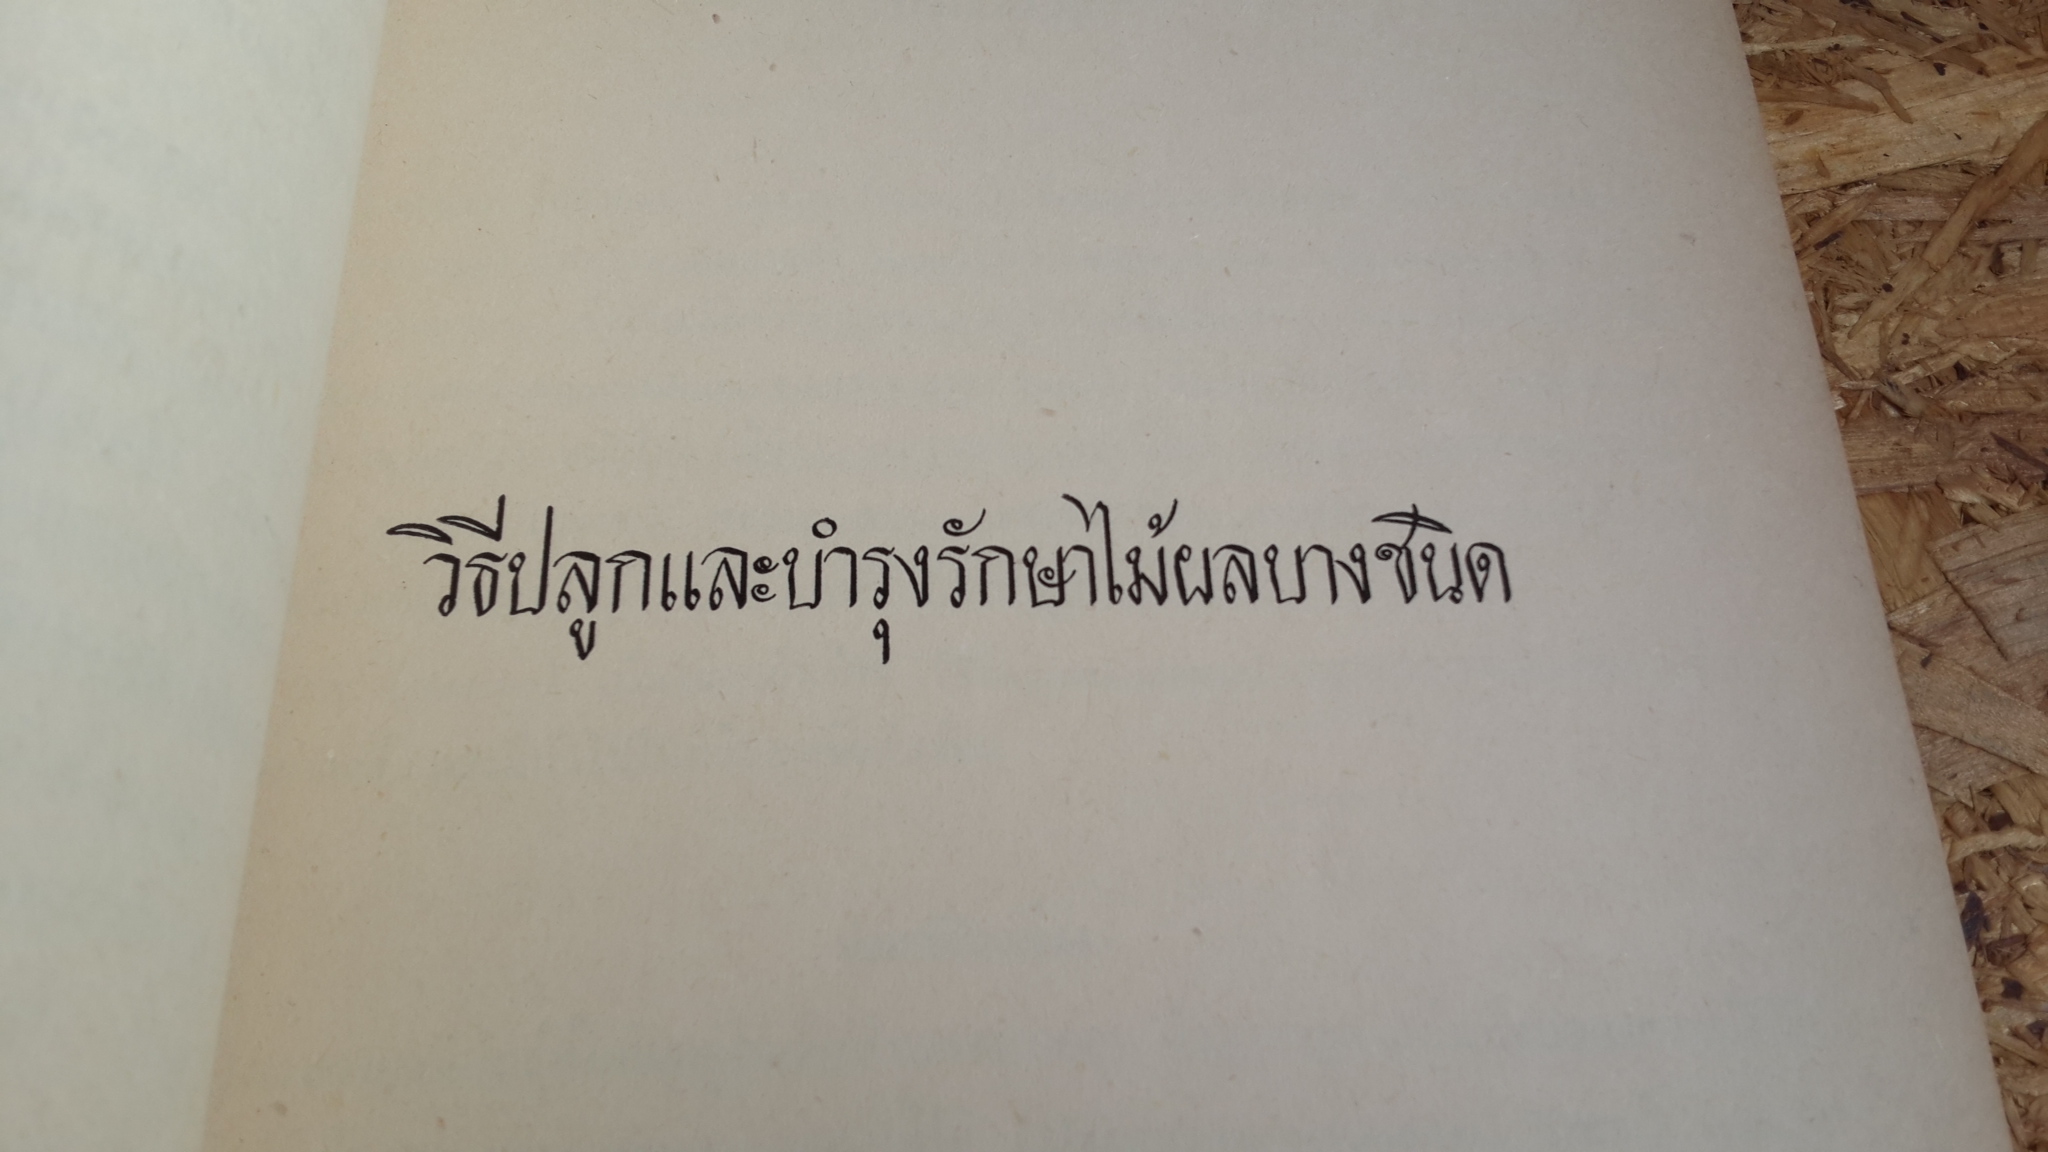 วิธีปลูกและบำรุงรักษาไม้ผลบางชนิด